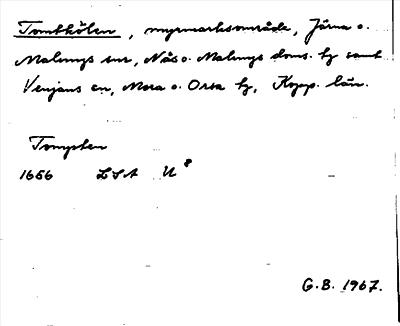 Tomthölen, myrmarksområde, Järna o.
Malungs snr, Nås o. Malungs doms. hg samt
Venjans sn, Mora o. Orsa hg, Kopp. län.
Tompten
1656 LSA U 8
G.B. 1967.